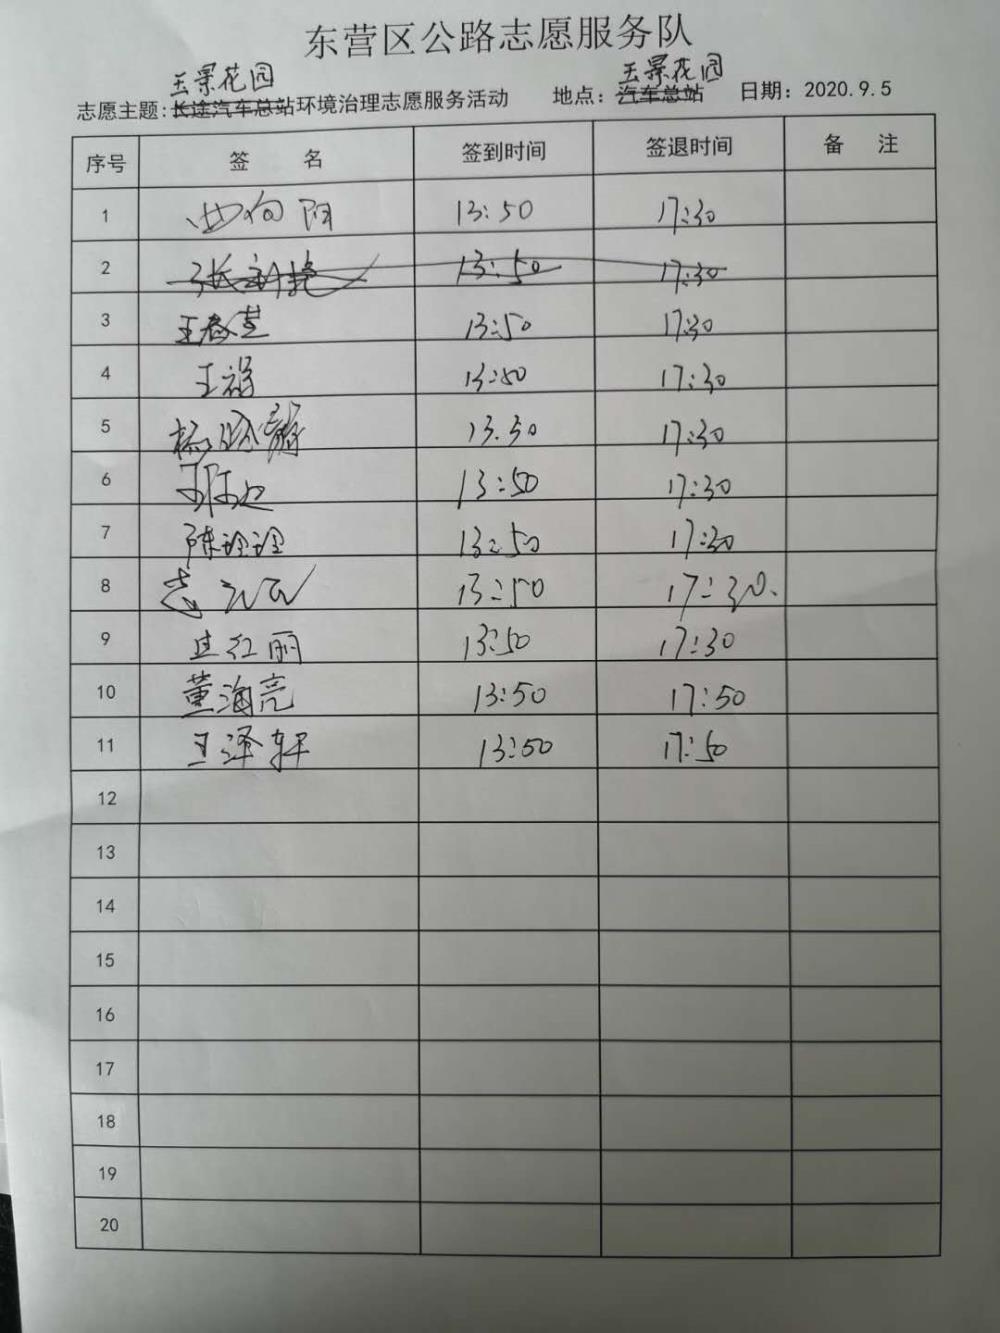 东营区公路志愿服务队
玉景花园 玉景花园
志愿主题:长途汽车总站环境治理志愿服务活动 地点:汽车总站 日期:2020.9.5
序号 签 名 签到时间 签退时间 备 注
1 向阳 13:50 17:30
2 13:50 17:30
3 王春芝 13:50 17:30
4 王福 13:50 17:30
5 杨 13.30 17:30
6 13:50 17:30
7 陈玲玲 13:50 17:30
8 13:50 17:30.
9 红丽 13:50 17:30
10 董海亮 13:50 17:50
11 王泽轩 13:50 17:50
12
13
14
15
16
17
18
19
20